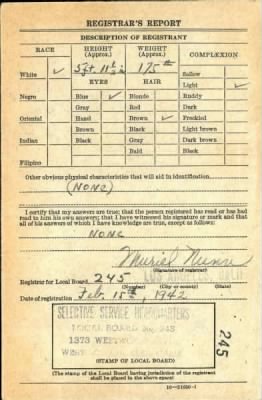 REGISTRAR'S REPORT
DESCRIPTION OF REGISTRANT
RACE HEIGHT (Approx.) WEIGHT (Approx.) COMPLEXION
5 ft. 11½ in 175
White ✓ EYES HAIR Sallow
Light ✓
Negro Blue ✓ Blonde Ruddy
Gray Red Dark
Oriental Hazel Brown ✓ Freckled
Brown Black Light brown
Indian Black Gray Dark brown
Bald Black
Filipino
Other obvious physical characteristics that will aid in identification
(NONE)
I certify that my answers are true; that the person registered has read or has had
read to him his own answers; that I have witnessed his signature or mark and that
all of his answers of which I have knowledge are true, except as follows:
NONE
Muriel
(Signature of registrar)
Registrar for Local Board 245 LOS ANGELES,
(Number) (City or county) (State)
Date of registration Feb. 15th, 1942
SELECTIVE SERVICE HEADQUARTERS
LOCAL BOARD No. 245
1373
WEST
(STAMP OF LOCAL BOARD)
245
(The stamp of the Local Board having jurisdiction of the registrant
shall be placed in the above space)